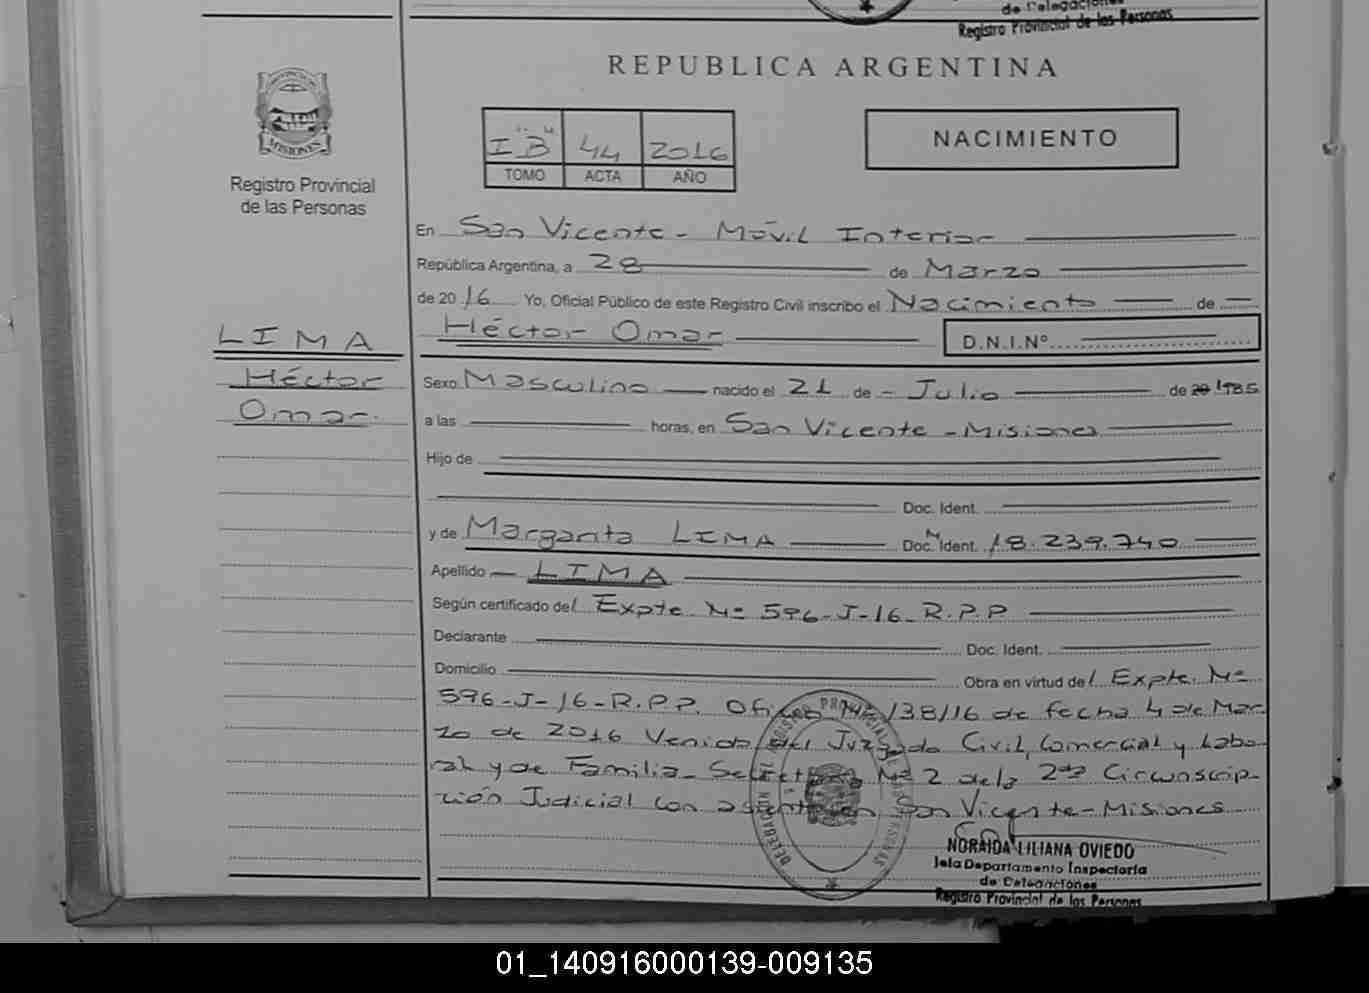 de Delegaciones
Registro Provincial de las Personas
REPUBLICA ARGENTINA
PROVINCIA DE
MISIONES
Registro Provincial
de las Personas
I "B" 44 2016
TOMO ACTA AÑO
NACIMIENTO
En San Vicente - Móvil Interior
República Argentina, a 28 de Marzo
de 2016 Yo, Oficial Público de este Registro Civil inscribo el Nacimiento de
Héctor Omar D.N.I.Nº
LIMA
Héctor
Omar.
Sexo Masculino nacido el 21 de - Julio de 20 1985
a las horas, en San Vicente - Misiones
Hijo de
Doc. Ident.
y de Margarita LIMA Doc. Ident. M 18.239.740
Apellido LIMA
Según certificado del Expte Nº 596-J-16-R.P.P
Declarante Doc. Ident.
Domicilio Obra en virtud del Expte. Nº
596-J-16-R.P.P. Oficio Nº 138/16 de fecha 4 de Mar
zo de 2016 Venido del Juzgado Civil, Comercial y Labo-
ral y de Familia - Secretaria Nº 2 de la 2da Circunscrip-
ción Judicial con asiento en San Vicente - Misiones
NORAIDA LILIANA OVIEDO
Jefa Departamento Inspectoria
de Delegaciones
Registro Provincial de las Personas
01_140916000139-009135